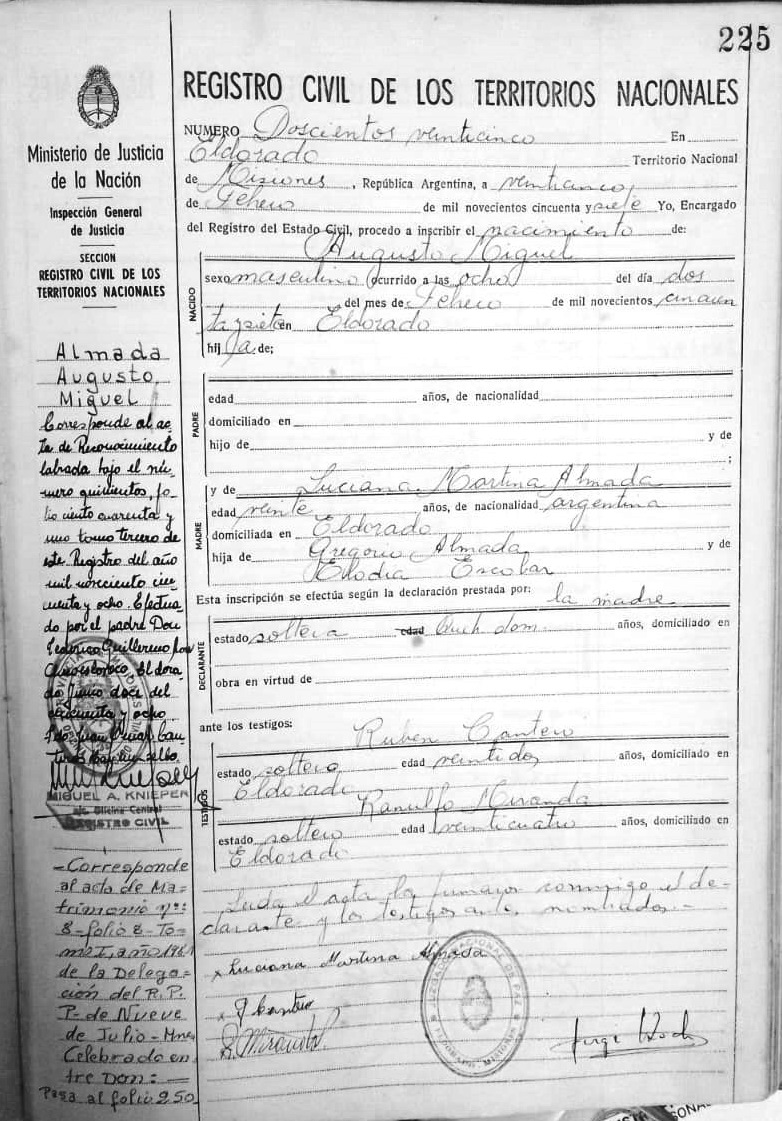 225
REGISTRO CIVIL DE LOS TERRITORIOS NACIONALES
Ministerio de Justicia
de la Nación
Inspección General
de Justicia
SECCION
REGISTRO CIVIL DE LOS
TERRITORIOS NACIONALES
Almada
Augusto
Miguel
Corresponde al ac-
ta de Reconocimiento
labrada bajo el nú-
mero quinientos, fo-
lio ciento cuarenta y
uno tomo tercero de
este Registro del año
mil novecientos cin-
cuenta y ocho. Efectua-
do por el padre Don
Federico Guillermo
Eldora-
do Junio doce del
cincuenta y ocho
MIGUEL A. KNIEPER
a/c. Oficina Central
REGISTRO CIVIL
-Corresponde
al acta de Ma=
trimonio nº:
8-folio 8-To=
mo I, año 1961
de la Delega=
ción del R.P.
P- de Nueve
de Julio - Mnes
Celebrado en
tre Don: —
Pasa al folio 250
NUMERO Doscientos veinticinco En
Eldorado Territorio Nacional
de Misiones, República Argentina, a veinticinco
de Febrero de mil novecientos cincuenta y siete Yo, Encargado
del Registro del Estado Civil, procedo a inscribir el nacimiento de:
Augusto Miguel
NACIDO
sexo masculino ocurrido a las ocho del día dos
del mes de Febrero de mil novecientos cincuen
ta y siete en Eldorado
hijo de;
PADRE
edad años, de nacionalidad
domiciliado en
hijo de y de
;
MADRE
y de Luciana Martina Almada
edad veinte años, de nacionalidad argentina
domiciliada en Eldorado
hija de Gregorio Almada y de
Elodia Escobar
Esta inscripción se efectúa según la declaración prestada por: la madre
DECLARANTE
estado soltera edad dom. años, domiciliado en
obra en virtud de
ante los testigos:
TESTIGOS
Ruben Cantero
estado soltero edad veintidos años, domiciliado en
Eldorado
Ranulfo Miranda
estado soltero edad veinticuatro años, domiciliado en
Eldorado
Leida el acta la firmaron conmigo el de-
clarante y los testigos nombrados.-
x Luciana Martina Almada
x R Cantero
R. Miranda
Jorge